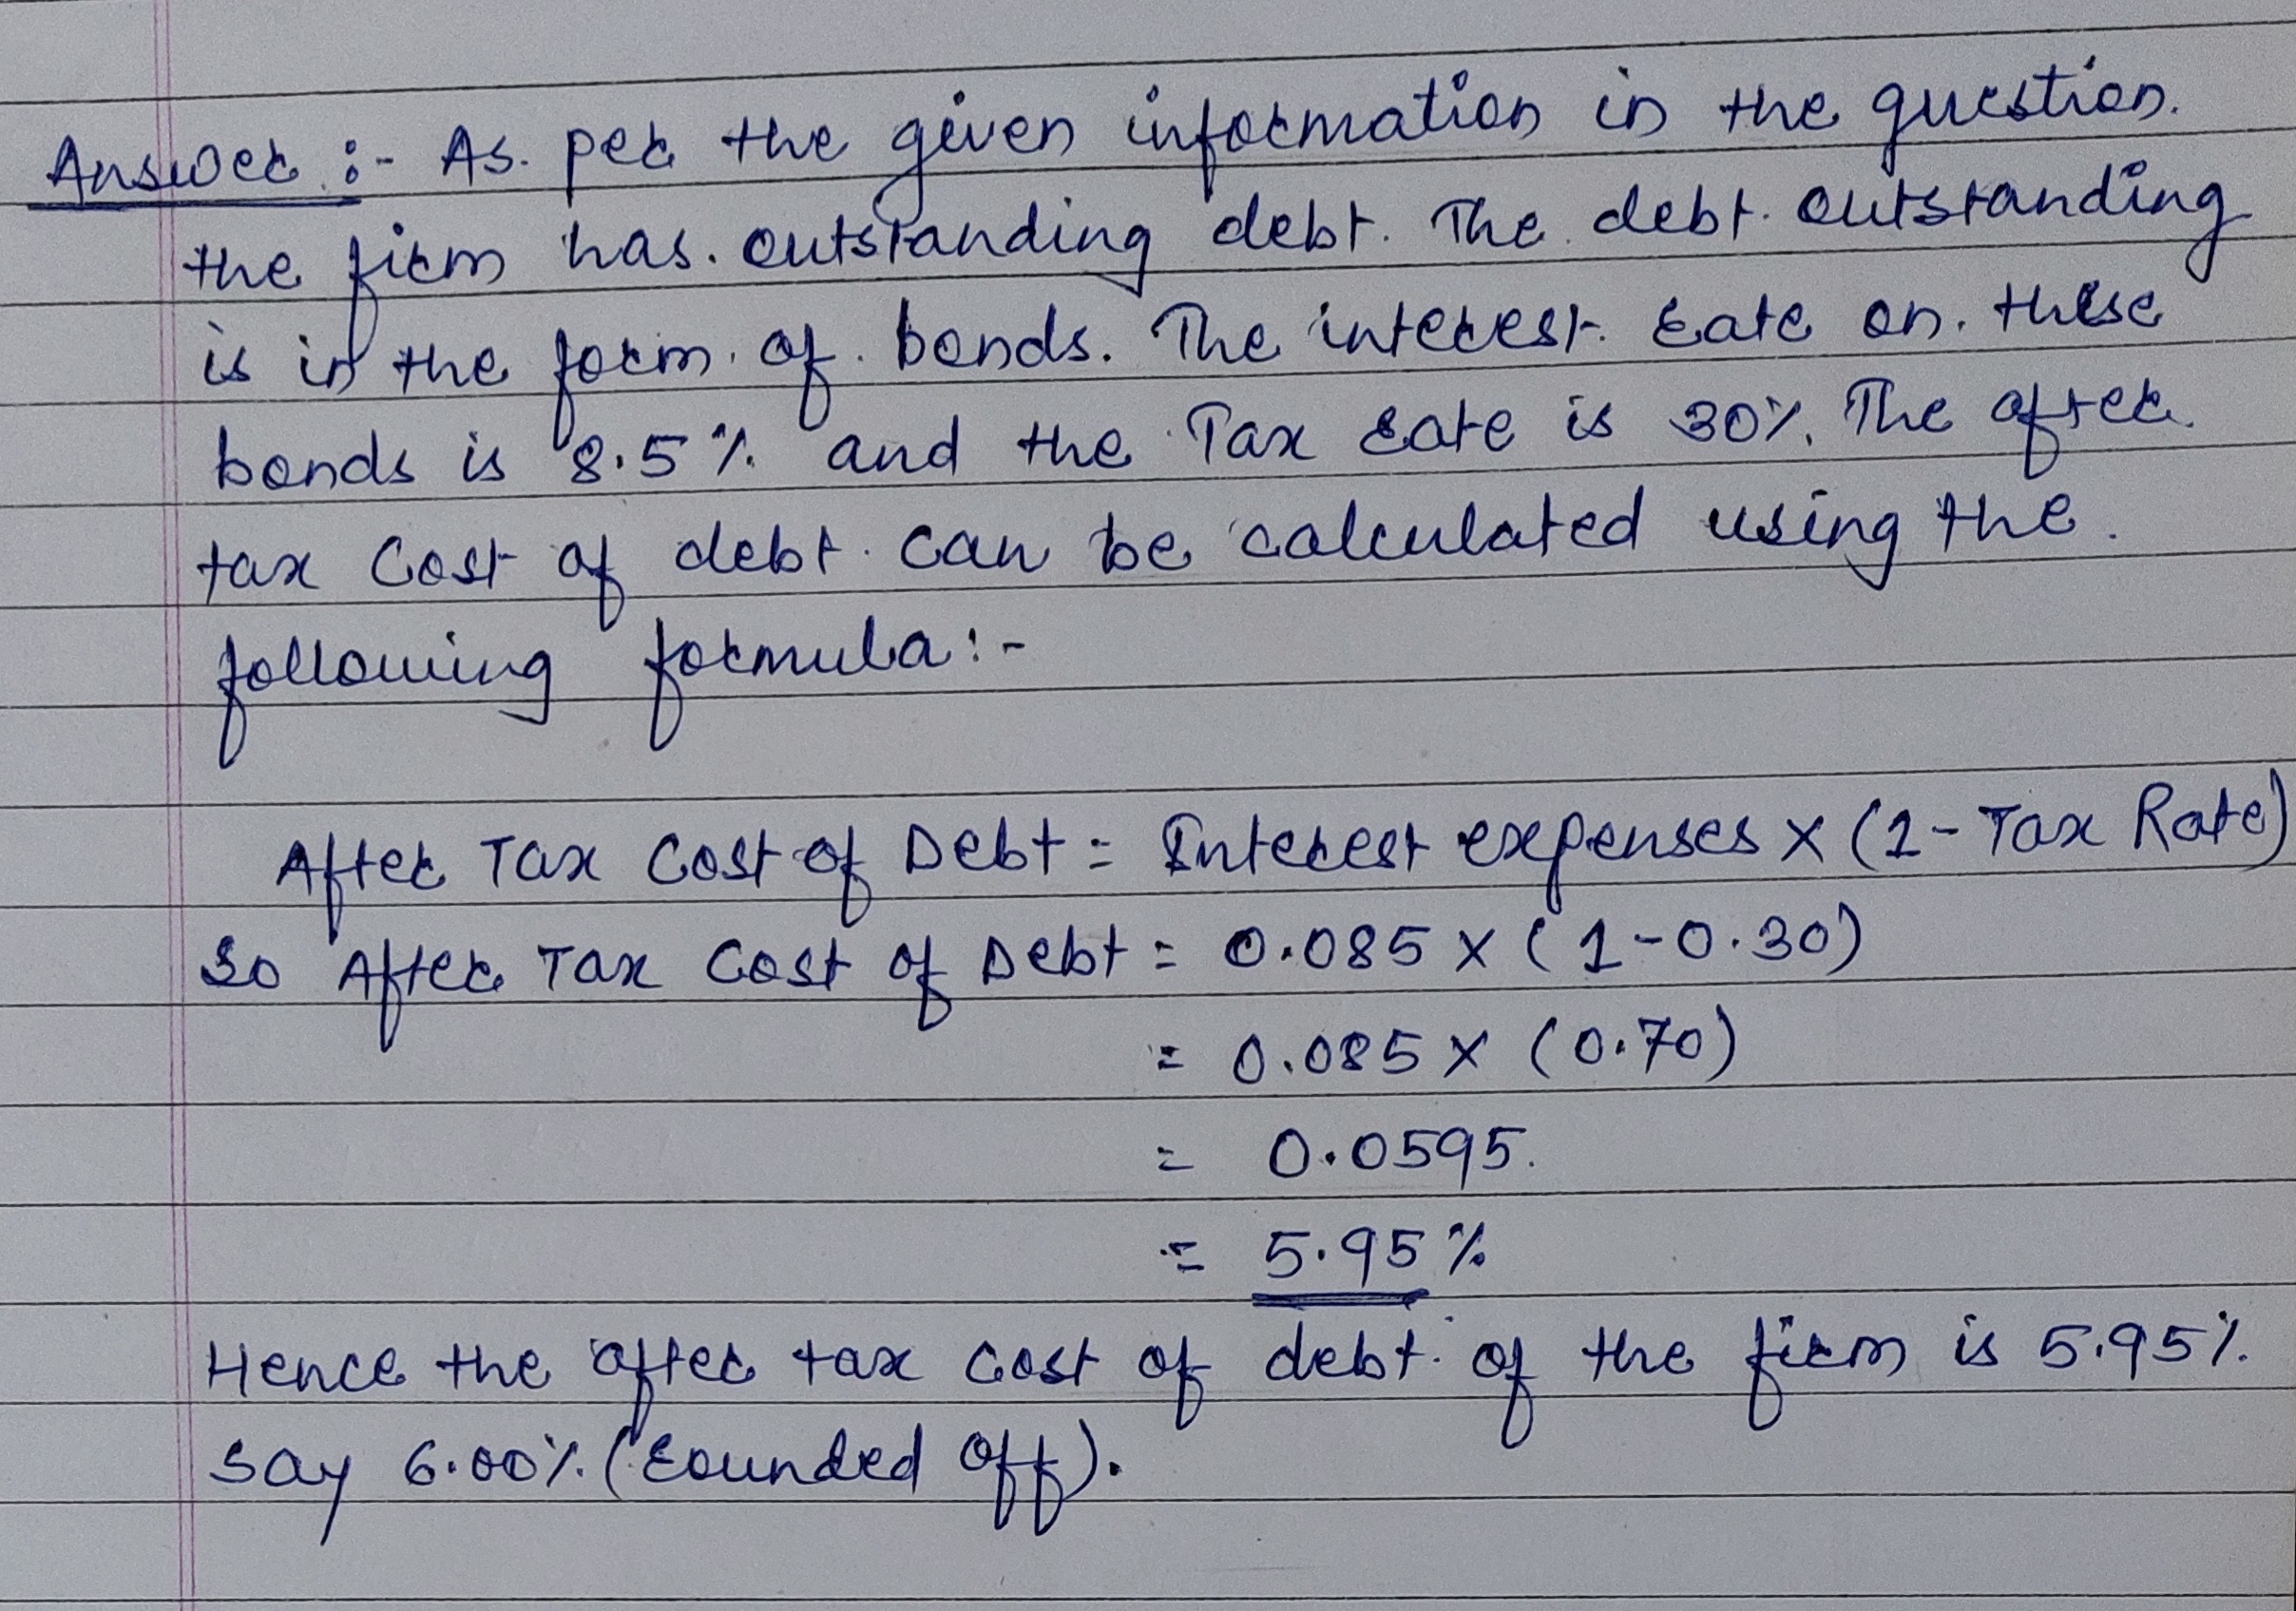 Answer :- As per the given information in the question.
the firm has outstanding debt. The debt outstanding
is in the form of bonds. The interest rate on these
bonds is 8.5% and the Tax rate is 30%. The after
tax Cost of debt can be calculated using the
following formula:-
After Tax Cost of Debt = Interest expenses x (1-Tax Rate)
So After Tax Cost of Debt = 0.085 x (1-0.30)
= 0.085 x (0.70)
= 0.0595.
= 5.95%
Hence the after tax cost of debt of the firm is 5.95%
say 6.00% (rounded off).